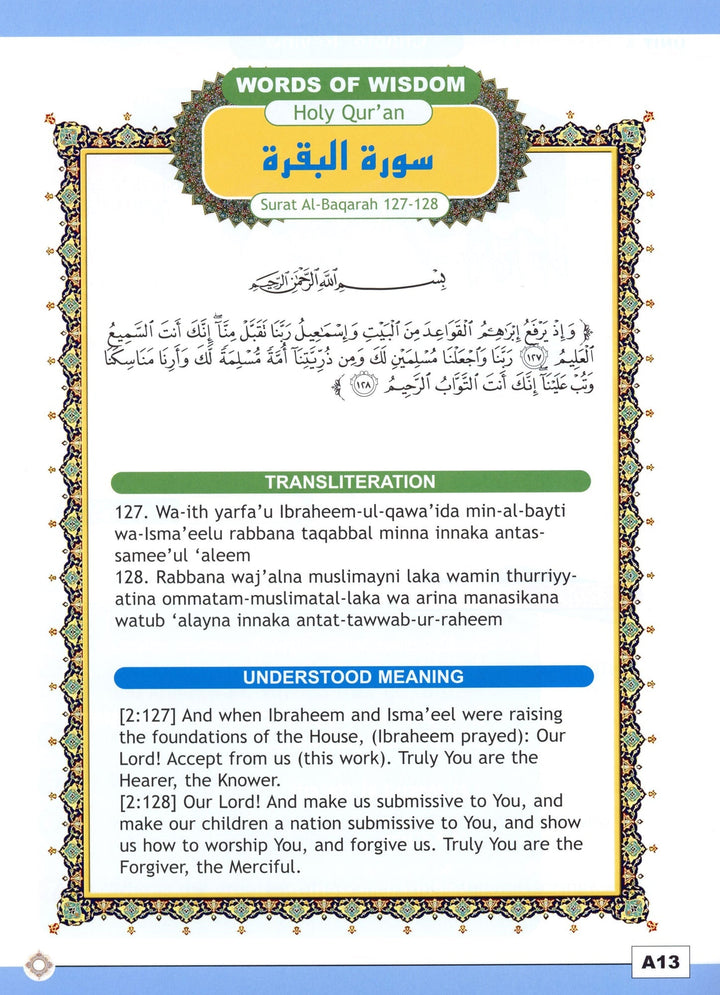 WORDS OF WISDOM
Holy Qur’an
سورة البقرة
Surat Al-Baqarah 127-128
بِسْمِ اللَّهِ الرَّحْمَٰنِ الرَّحِيمِ
﴿ وَإِذْ يَرْفَعُ إِبْرَاهِـۧمُ الْقَوَاعِدَ مِنَ الْبَيْتِ وَإِسْمَاعِيلُ رَبَّنَا تَقَبَّلْ مِنَّآ ۖ إِنَّكَ أَنتَ السَّمِيعُ
الْعَلِيمُ ۝١٢٧ رَبَّنَا وَاجْعَلْنَا مُسْلِمَيْنِ لَكَ وَمِن ذُرِّيَّتِنَآ أُمَّةً مُّسْلِمَةً لَّكَ وَأَرِنَا مَنَاسِكَنَا
وَتُبْ عَلَيْنَآ إِنَّكَ أَنتَ التَّوَّابُ الرَّحِيمُ ۝١٢٨ ﴾
TRANSLITERATION
127. Wa-ith yarfa’u Ibraheem-ul-qawa’ida min-al-bayti
wa-Isma’eelu rabbana taqabbal minna innaka antas-
samee’ul ‘aleem
128. Rabbana waj’alna muslimayni laka wamin thurriyy-
atina ommatam-muslimatal-laka wa arina manasikana
watub ‘alayna innaka antat-tawwab-ur-raheem
UNDERSTOOD MEANING
[2:127] And when Ibraheem and Isma’eel were raising
the foundations of the House, (Ibraheem prayed): Our
Lord! Accept from us (this work). Truly You are the
Hearer, the Knower.
[2:128] Our Lord! And make us submissive to You, and
make our children a nation submissive to You, and show
us how to worship You, and forgive us. Truly You are the
Forgiver, the Merciful.
A13